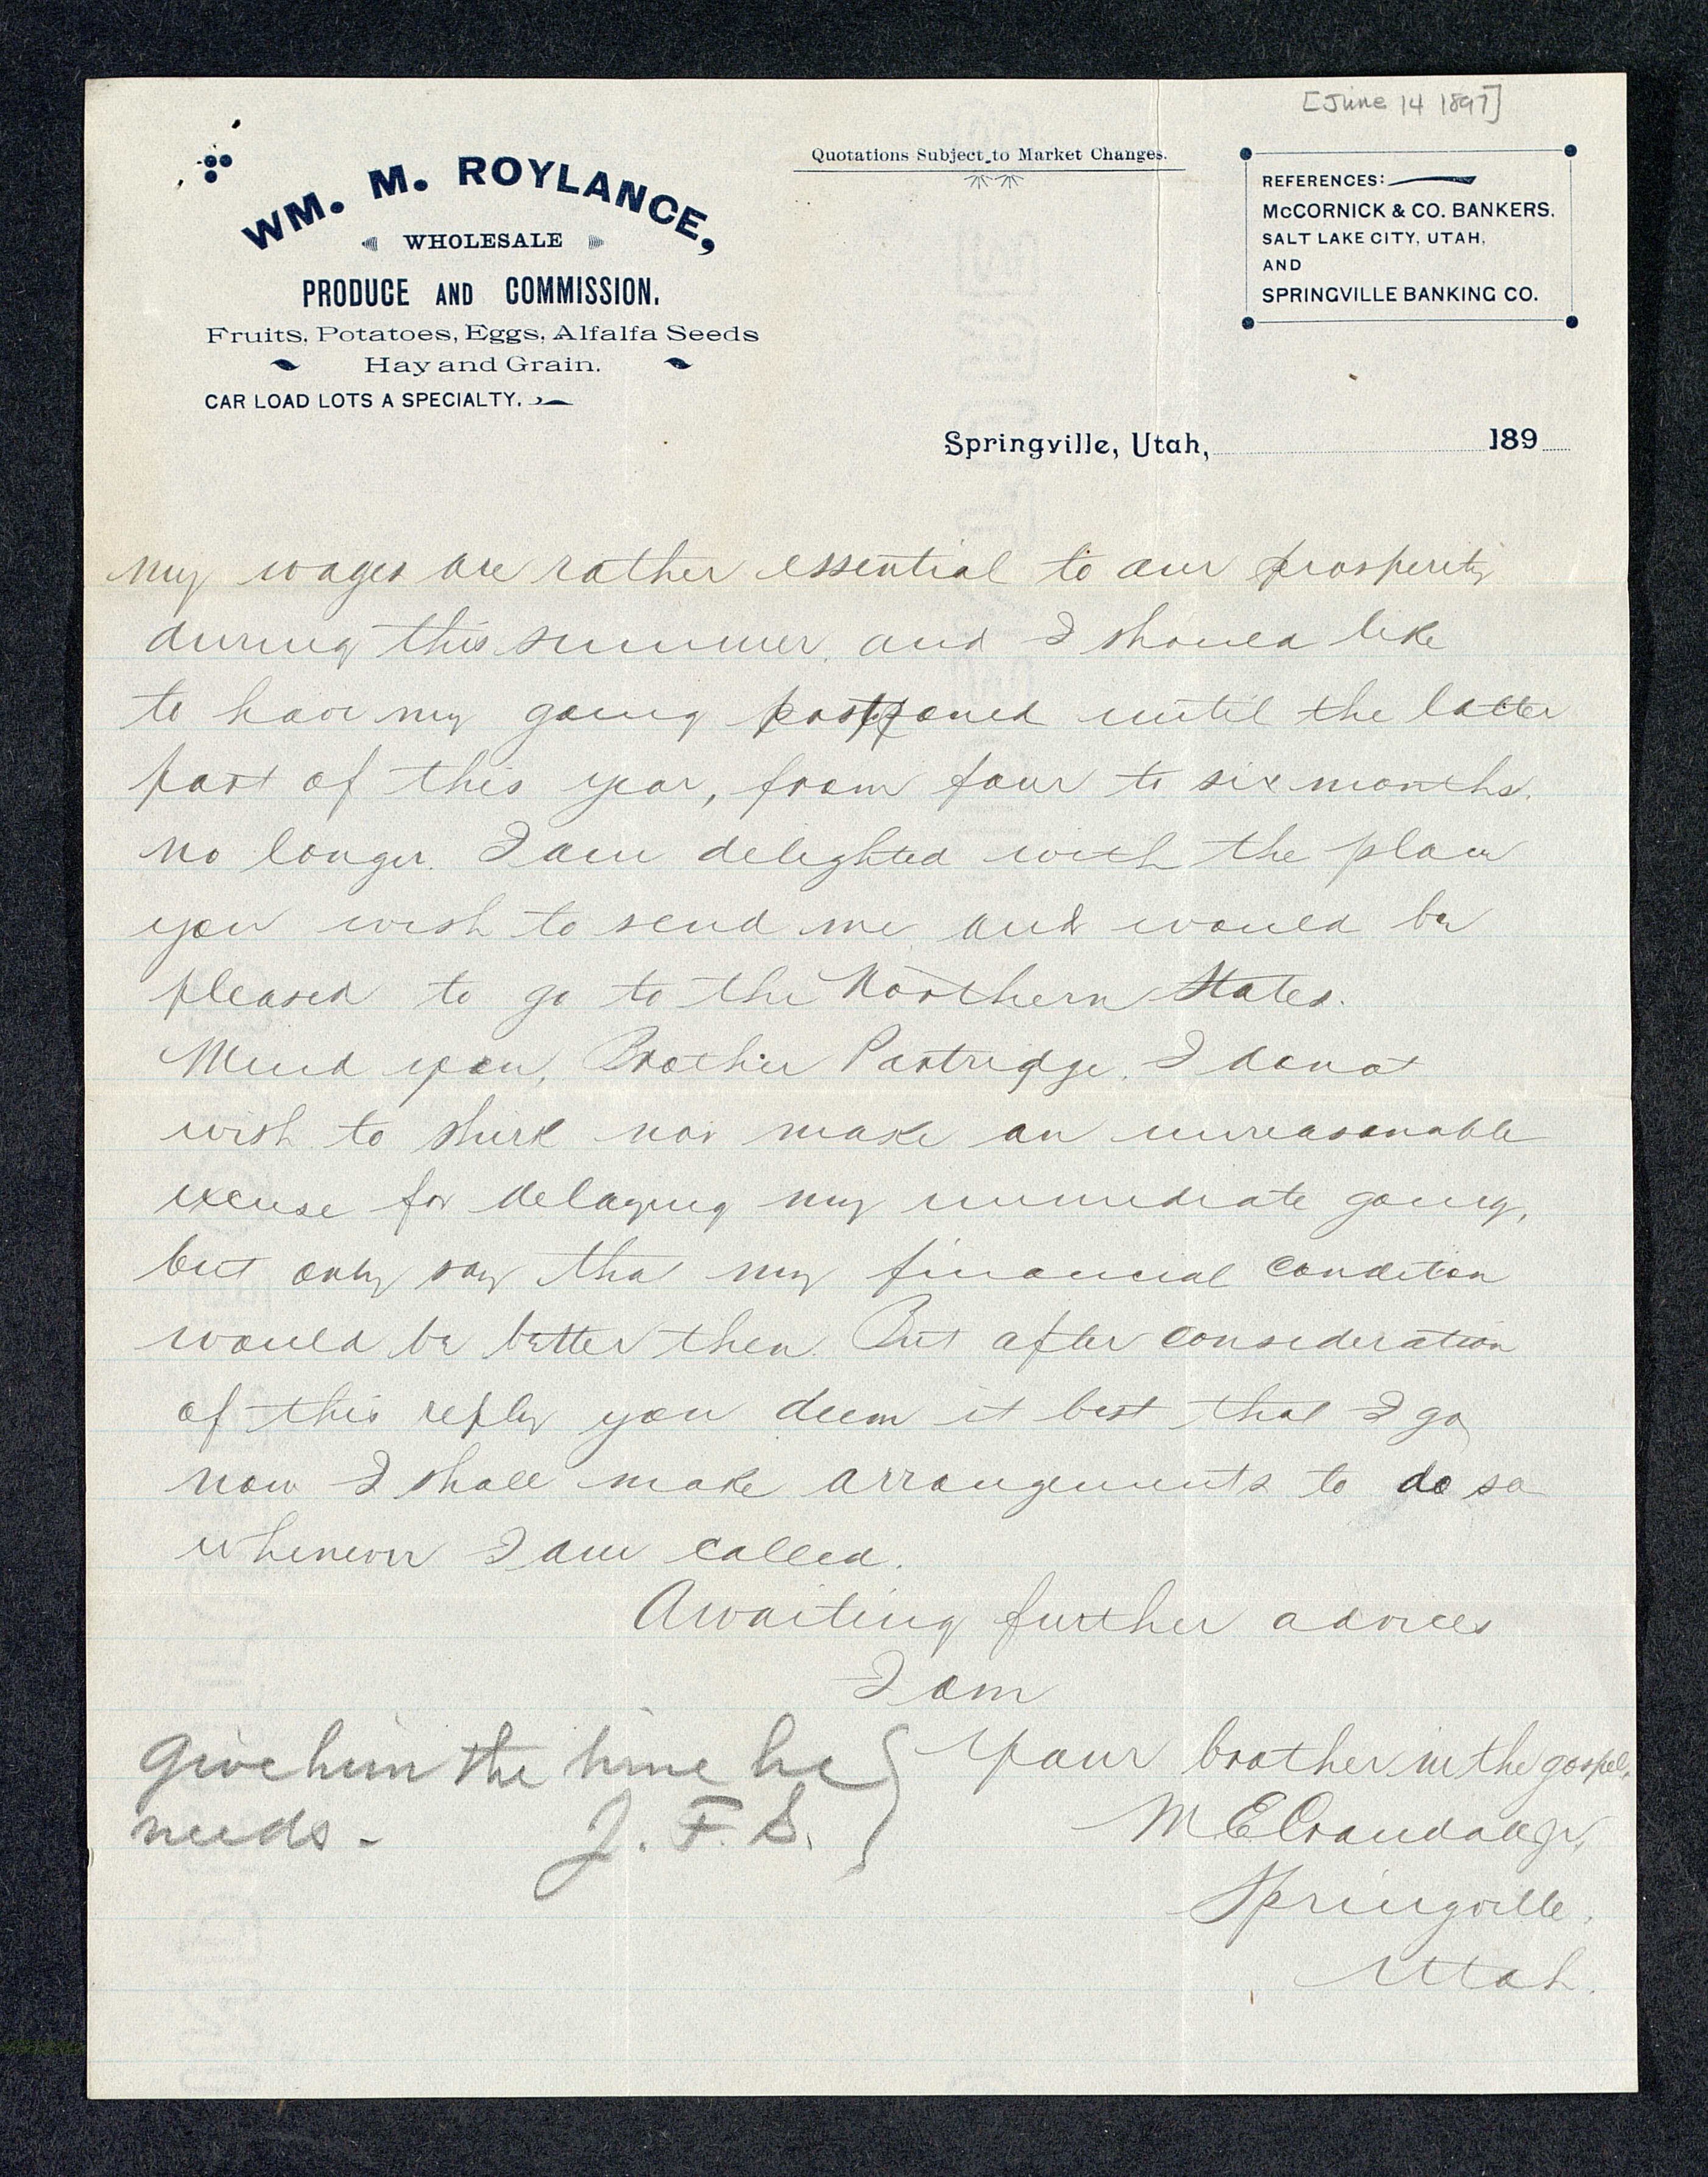 [June 14 1897]
WM. M. ROYLANCE,
WHOLESALE
PRODUCE AND COMMISSION.
Fruits, Potatoes, Eggs, Alfalfa Seeds
Hay and Grain.
CAR LOAD LOTS A SPECIALTY.
Quotations Subject to Market Changes.
REFERENCES:
McCORNICK & CO. BANKERS.
SALT LAKE CITY, UTAH,
AND
SPRINGVILLE BANKING CO.
Springville, Utah, 189
my wages are rather essential to our prosperity
during this summer, and I should like
to have my going postponed until the latter
part of this year, from four to six months.
no longer. I am delighted with the place
you wish to send me and would be
pleased to go to the Northern States.
Mind you, Brother Partridge, I do not
wish to shirk nor make an unreasonable
excuse for delaying my immediate going,
but only say tha my financial condition
would be better then. But after consideration
of this reply you deem it best that I go
now I shall make arrangements to do so
whenever I am called.
Awaiting further advices
I am
Your brother in the gospel,
M E Crandall Jr,
Springville,
Utah.
Give him the time he
needs - J. F. S.